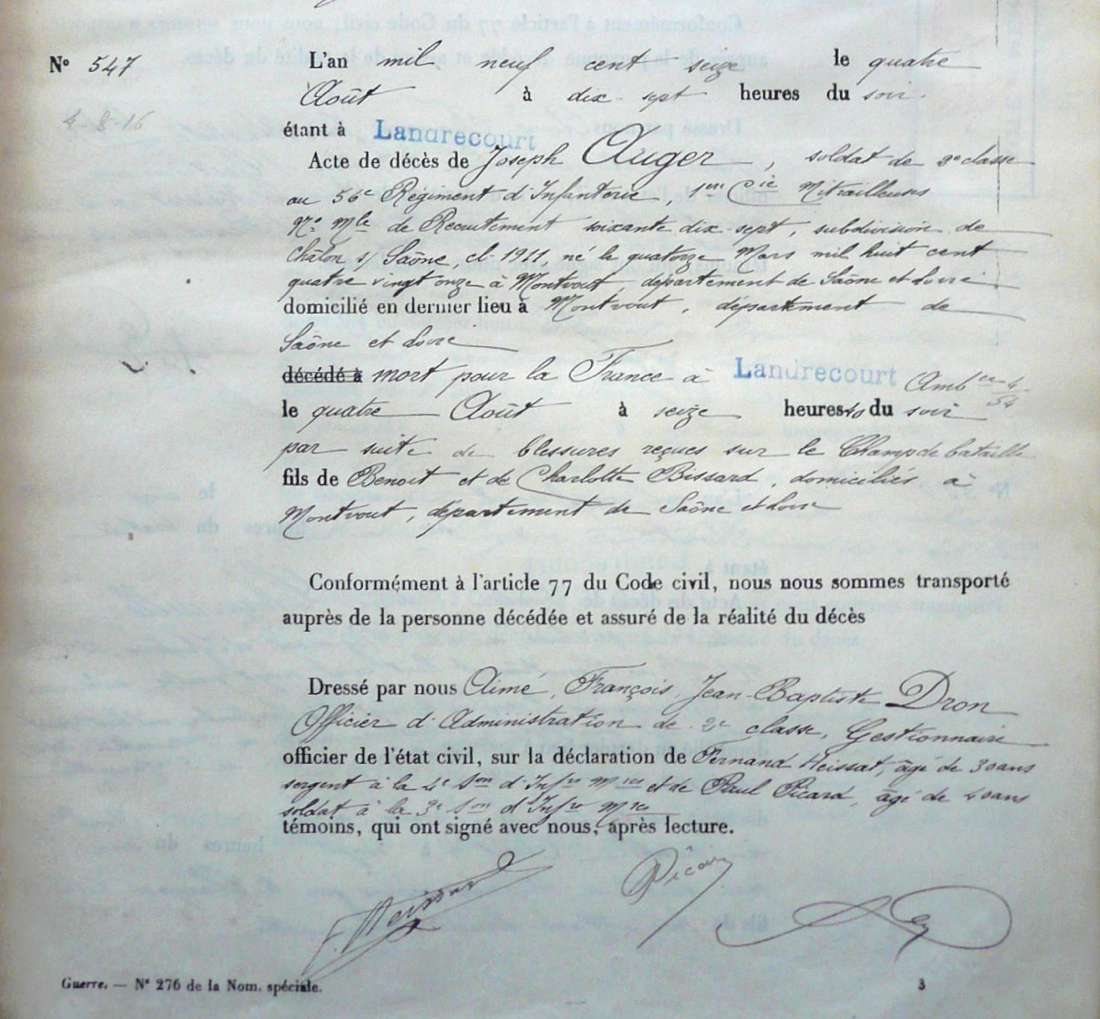 N° 547 L'an mil neuf cent seize le quatre
4-8-16 Août à dix-sept heures du soir
étant à Landrecourt
Acte de décès de Joseph Auger, soldat de 2e classe
au 56e Régiment d'Infanterie, 1ère Cie Mitrailleuses
N° Mle de Recrutement soixante dix-sept, subdivision de
Châlon s/ Saône, cl. 1911, né le quatorze Mars mil huit cent
quatre vingt onze à Montvout, département de Saône et Loire
domicilié en dernier lieu à Montvout, département de
Saône et Loire
décédé à mort pour la France à Landrecourt Ambce 4/54
le quatre Août à seize heures 40 du soir
par suite de blessures reçues sur le Champ de bataille
fils de Benoit et de Charlotte Bissard, domiciliés à
Montvout, département de Saône et Loire
Conformément à l'article 77 du Code civil, nous nous sommes transporté
auprès de la personne décédée et assuré de la réalité du décès
Dressé par nous Aimé, François, Jean-Baptiste Dron
Officier d'Administration de 2e classe, Gestionnaire
officier de l'état civil, sur la déclaration de Fernand Heissat, âgé de 30 ans
sergent à la 4e Son d'Infrs Mres et de Paul Picard, âgé de 40 ans
soldat à la 3e Son d'Infrs Mres
témoins, qui ont signé avec nous, après lecture.
F. Heissat Picard
Guerre. — N° 276 de la Nom. spéciale. 3